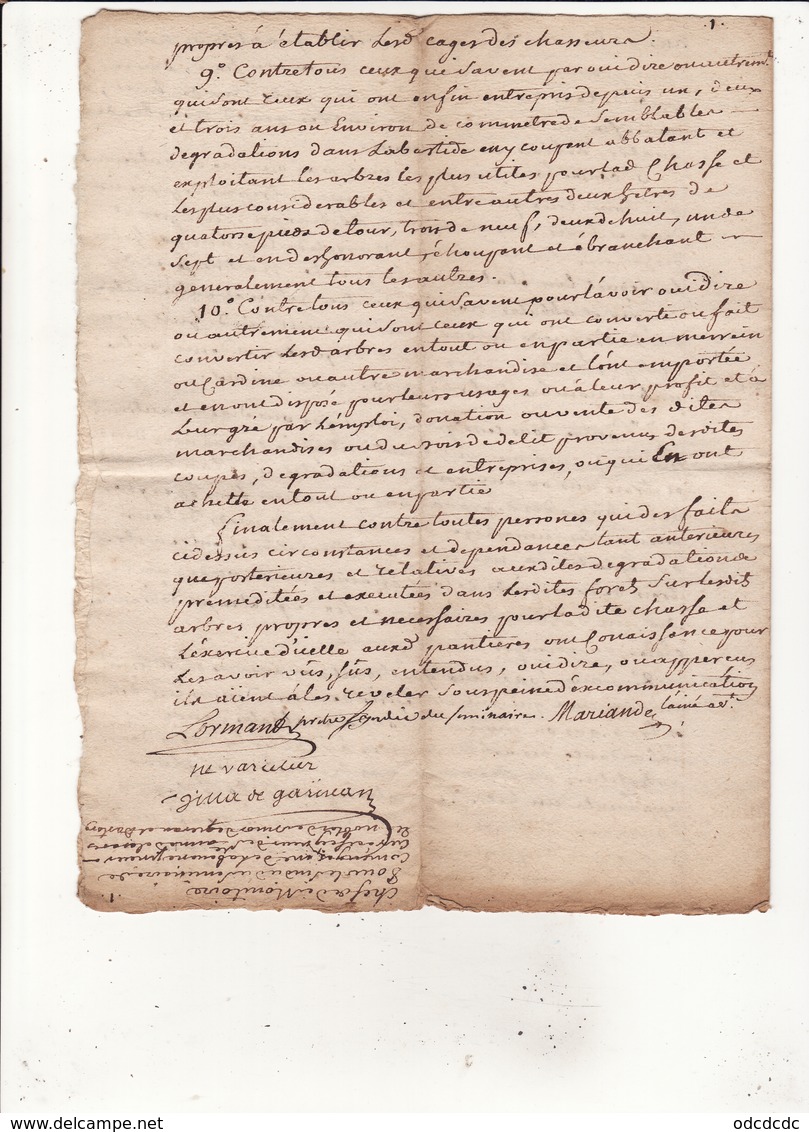 1.
propres à établir lesd. cages des chasseurs.
9.° Contre tous ceux qui savent par ouidire ou autremt.
qui sont ceux qui ont enfin entrepris depuis un, deux
et trois ans ou Environ de commetre de semblables
degradations dans Labastide en y coupant abbatant et
exploitant les arbres les plus utiles pour lad. Chasse et
les plus considerables et entre autres deux hetres de
quatorse pieds de tour, trois de neuf, deux de huit, un de
sept et en deshonorant, éhoupant et ébranchant
generalement tous les autres.
10.° Contre tous ceux qui savent pour l'avoir ouidire
ou autrement qui sont ceux qui ont converti ou fait
convertir lesd. arbres en tout ou en partie en merrein
ou Cardine ou autre marchandise et l'ont emportée
et en ont disposé pour leurs usages ou à leur profit et à
leur gré par l'emploi, donation ou vente des dites
marchandises ou du bois de delit provenu desdites
coupes, degradations et entreprises, ou qui en ont
achetté en tout ou en partie
Finalement contre toutes persones qui des faits
cidessus circonstances et dependances tant anterieures
que posterieures et relatives auxdites degradations
premeditées et executées dans lesdites forets sur lesdits
arbres propres et necessaires pour ladite chasse et
l'exercice d'icelle auxd. pantières ont Conaissence pour
les avoir vûs, sûs, entendus, ouidire, ou apperçus
ils aient à les reveler sous peine d'éxcommunication
Lormand prdre Syndic du seminaire. Mariande l'ainé at.
ne varietur
de garinean
Chefs de Monitoire
Pour le sindic du seminaire de
1
odcdcdc